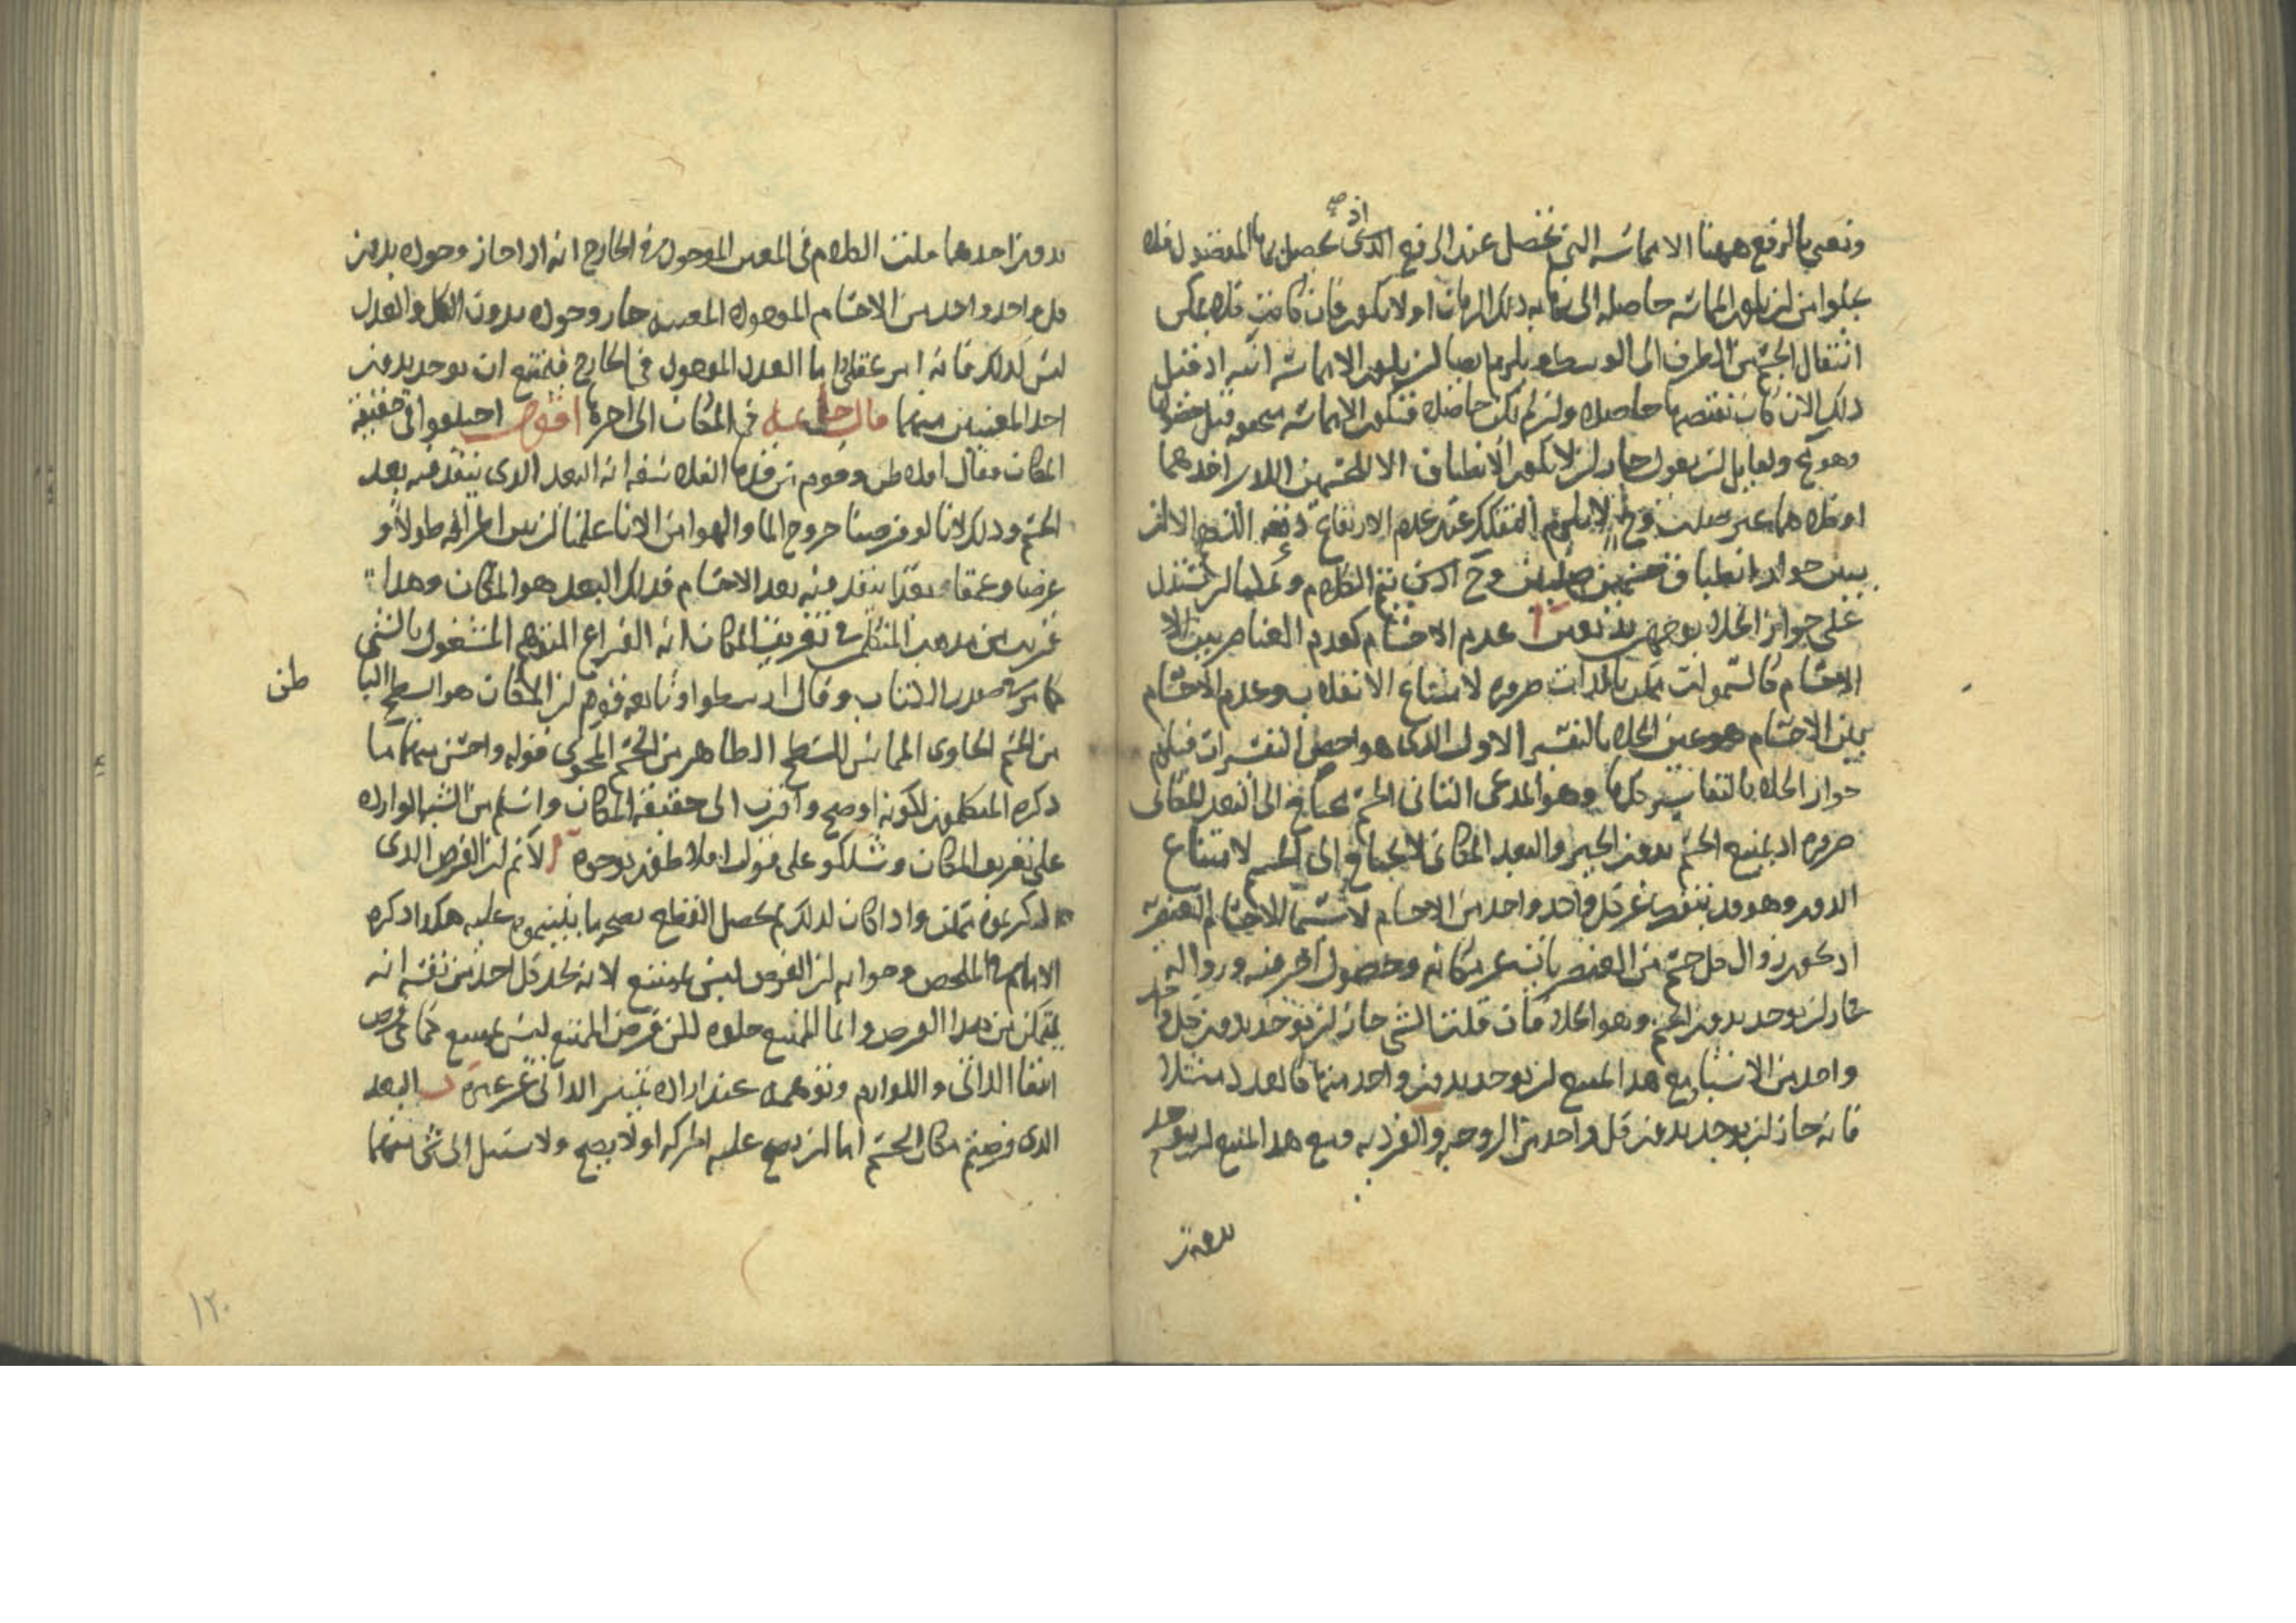 ونعني بالرفع ههنا الاماسه التي تحصل عند الرفع الذي يحصل بها المقصود فلا
يخلوا من ان يكون المماسه حاصله الى نهايه ذلك الزمان اولا يكون فان كانت
انتقال الجسم من الطرف الى الوسط ويلزم ايضا ان يكون الاماسه انيه اذ قبل
ذلك الان كان نقيضها حاصله وان لم تكن حاصله فتكون الاماسه متحققه قبل حصولها
وهو مح ولقايل ان يقول جاز ان لا يكون الانطباق الا للجسمين اللذين احدهما
او كلاهما غير صلب وح لا يلزم التفكك عند عدم الارتفاع دفعه اللهم الا ان
يبين جواز انطباق جسمين صلبين وح اذن يتم الكلام وعلينا ان نستدل
على جواز الخلا بوجهين بديعين آ عدم الاجسام كعدم العناصر بين
الاجسام كالسموات ممكن بالذات ضروره لامتناع الانقلاب وعدم الاجسام
بين الاجسام هو عين الخلا بالتفسير الاول الذي هو اخص التفسيرات فيلزم
جواز الخلا بالتفاسير كلها وهو المدعى الثاني الجسم يحتاج الى البعد المكاني
ضروره اذ يمتنع الجسم بدون الحيز والبعد المكاني لا يحتاج الى الجسم لامتناع
الدور وهو قد ينقض عن كل واحد واحد من الاجسام لا سيما الاجسام العنصريه
اذ يكون زوال كل جسم من العنصريات عن مكانه وحصول آخر فيه وزواله
جاز ان يوجد بدون الجسم وهو الخلا فان قلت الشي جاز ان يوجد بدون كل واحد
واحد من الاشيا مع هذا امتنع ان يوجد بدون واحد منها كالعدد مثلا
فانه جاز ان يوجد بدون كل واحد من الزوجيه والفرديه ومع هذا امتنع ان يوجد
بدون
بدون احدهما قلت الكلام في المعين الموجود في الخارج انه اذا جاز وجوده بدون
كل واحد واحد من الاجسام الموجوده المعينه جاز وجوده بدون الكل والعدد
ليس كذلك فانه امر عقلي اما العدد الموجود في الخارج فيمتنع ان يوجد بدون
احد المعنيين منهما قال في المكان الى اخره اقول اختلفوا في حقيقة
المكان فقال افلاطن وقوم من قدما الفلاسفه انه البعد الذي ينفذ فيه بعد
الجسم وذلك لانا لو فرضنا خروج الما والهوا من الانا علمنا ان بين اطرافه طولا و
عرضا وعمقا بعدا ينفذ فيه بعد الاجسام فذلك البعد هو المكان وهذا
قريب من مذهب المتكلمين في تعريف المكان انه الفراغ المتوهم المشغول بالشي
كما مر في صدر الكتاب وقال ارسطوا وتابعه قوم ان المكان هو السطح الباطن
من الجسم الحاوي المماس للسطح الظاهر من الجسم المحوي قوله واحسن منهما ما
ذكره المتكلمون لكونه اوضح واقرب الى حقيقة المكان واسلم من الشبه الوارده
على تعريف المكان وشككو على قول افلاطن بوجوه آ لا نم ان الفرض الذي
ذكرتموه ممكن واذا كان كذلك لم يحصل القطع بصحه ما يبنيموه عليه هكذا ذكره
الامام في الملخص وجوابه ان الفرض ليس بممتنع لانه يجد كل احد من نفسه انه
يتمكن من هذا الفرض وانما الممتنع خلوه لكن فرض الممتنع ليس بممتنع كما في فرض
انتفا الذاتي واللوازم وتوهمه عند اراده تمييز الذاتي عن غيره ب البعد
الذي فرضتم مكان الجسم اما ان يصح عليه الحركه او لا يصح ولا سبيل الى شي منهما
١٢٠